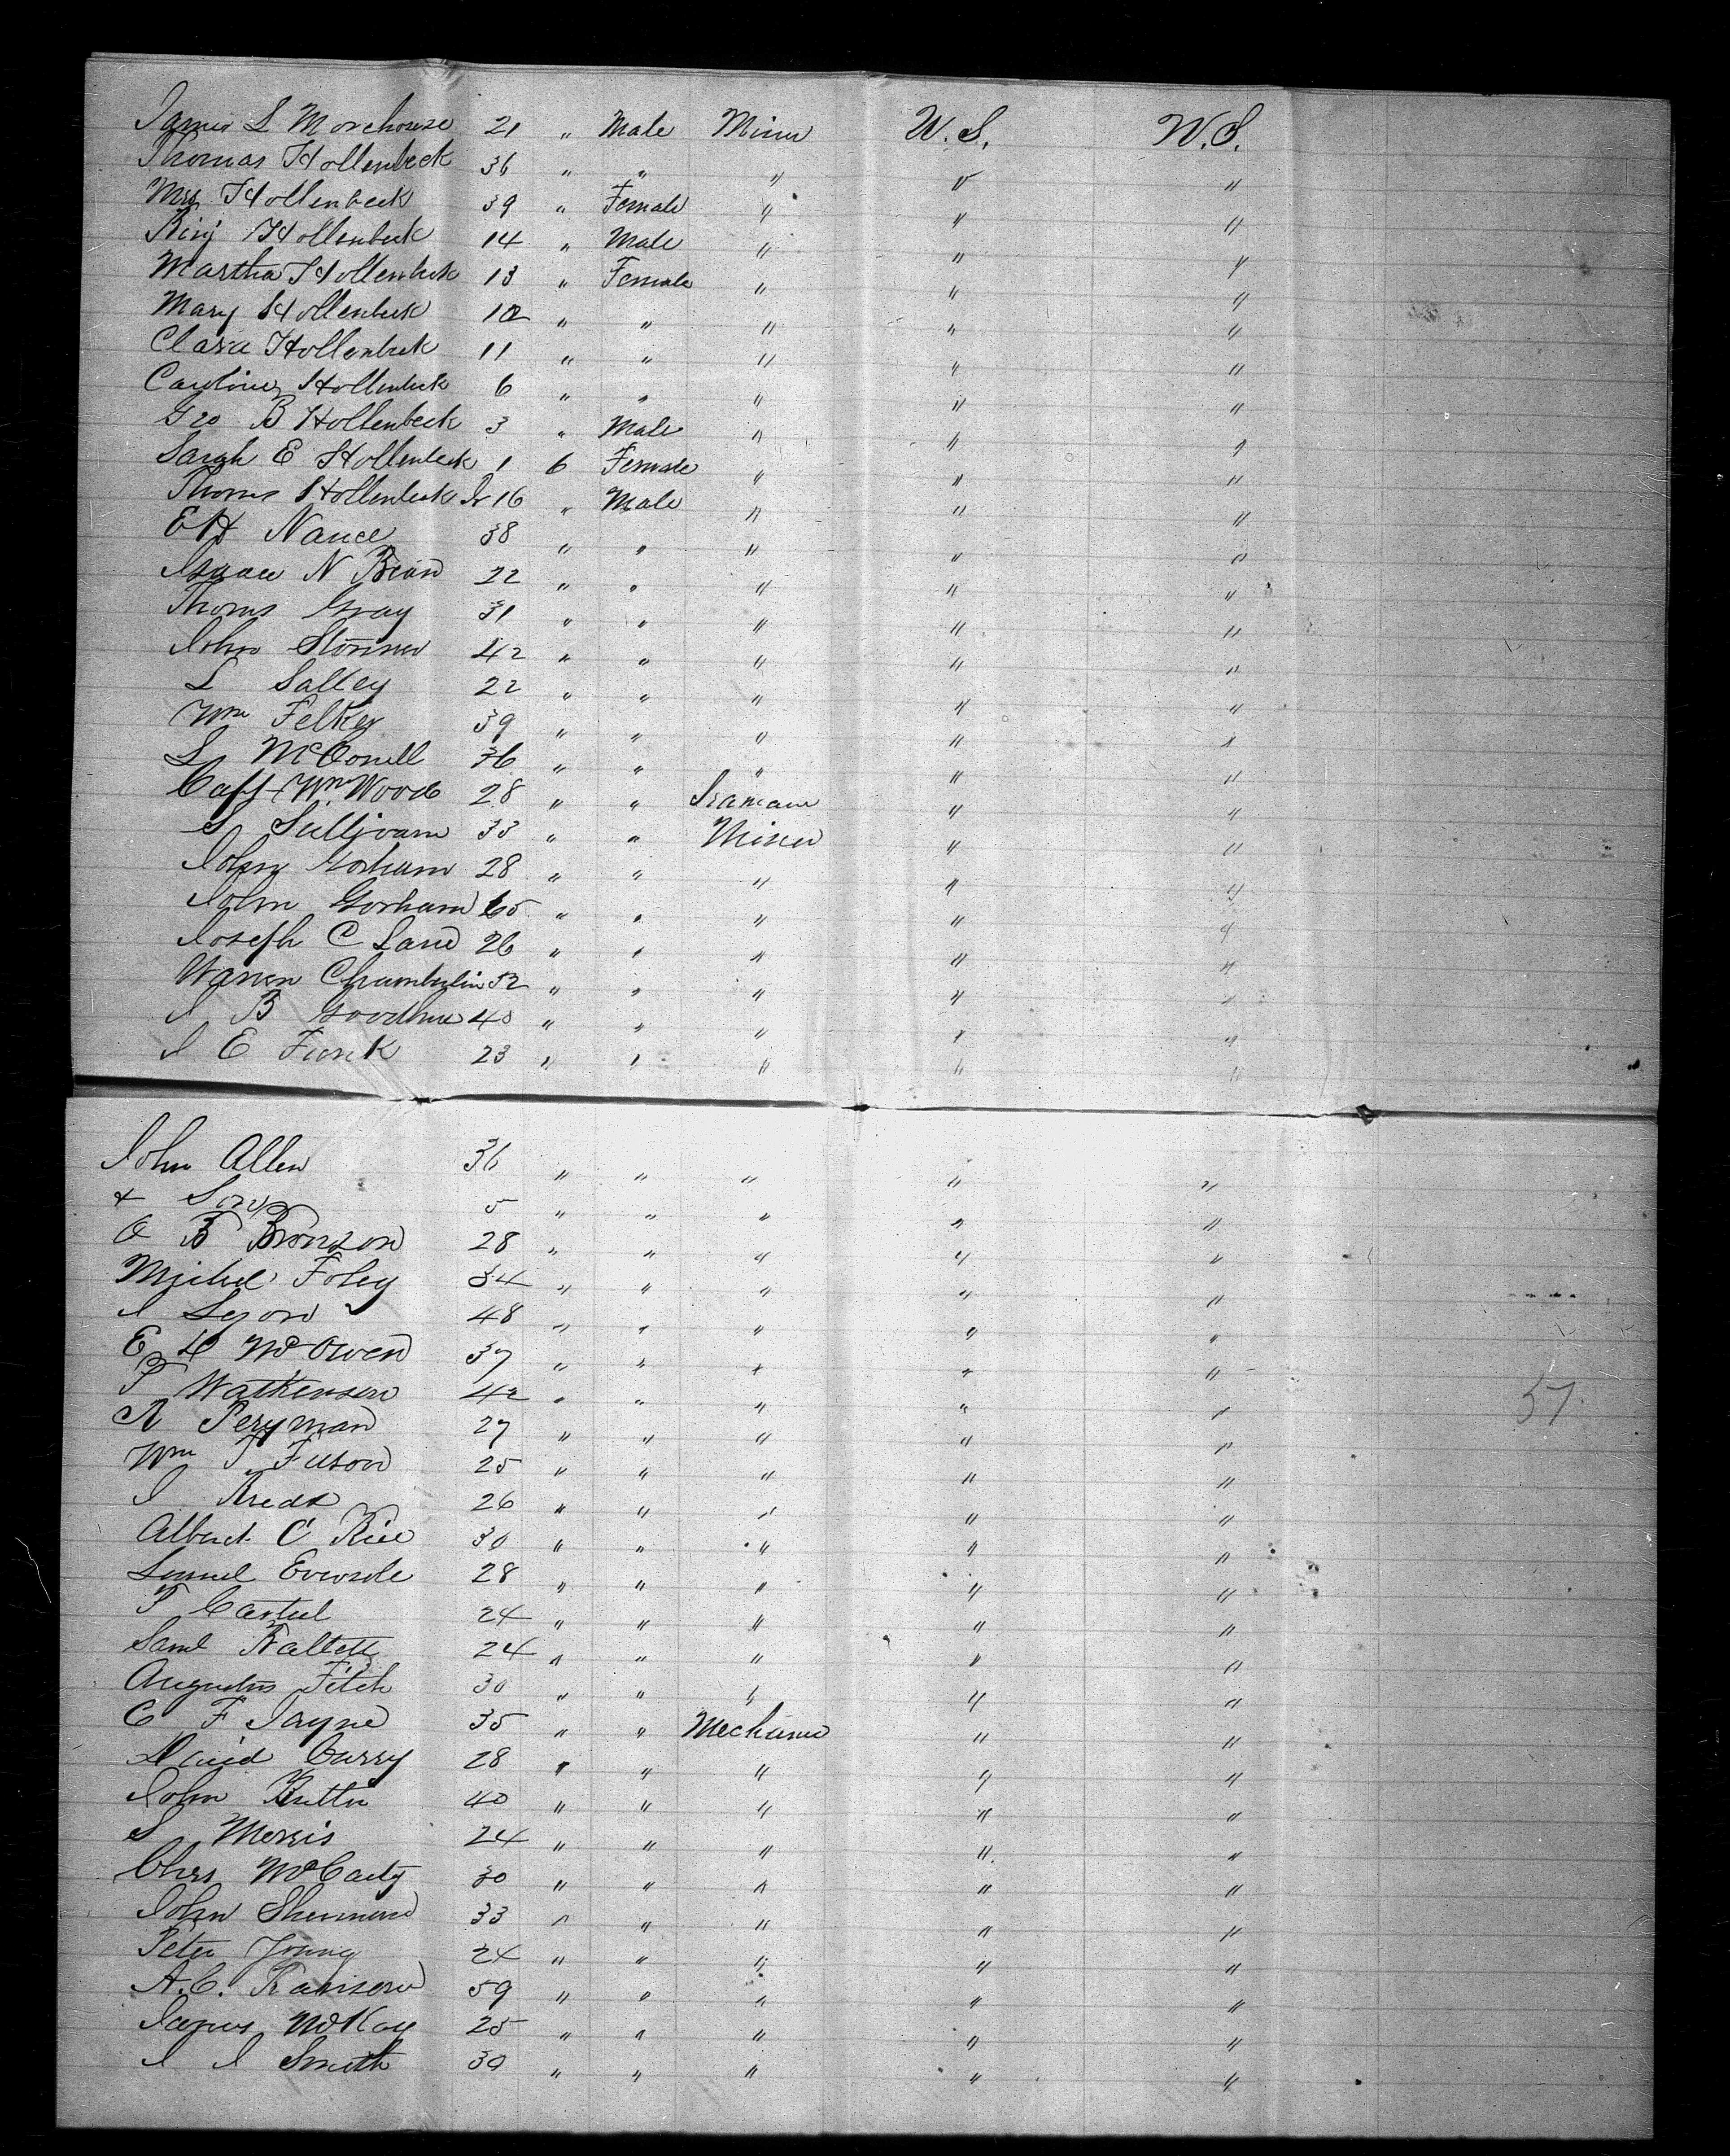 James L Morehouse 21 " Male Miner U.S. U.S.
Thomas Hollenbeck 36 " " " " "
Mrs Hollenbeck 39 " Female " " "
Benj Hollenbeck 14 " Male " " "
Martha Hollenbeck 13 " Female " " "
Mary Hollenbeck 10 " " " " "
Clara Hollenbeck 11 " " " " "
Caroline Hollenbeck 6 " " " " "
Geo B Hollenbeck 3 " Male " " "
Sarah E Hollenbeck 1 6 Female " " "
Thoms Hollenbeck Jr 16 " Male " " "
E H Nance 38 " " " " "
Isaac N Bean 22 " " " " "
Thoms Gray 31 " " " " "
John 42 " " " " "
L Salley 22 " " " " "
Wm Felker 39 " " " " "
L 36 " " " " "
Capt Wm Wood 28 " " Seaman " "
S Sullivam 33 " " Miner " "
John Gorham 28 " " " " "
John Gorham 65 " " " " "
Joseph C Lane 26 " " " " "
Warren Chamberlin 52 " " " " "
J B Goodhue 40 " " " " "
J E Funk 23 " " " " "
John Allen 36 " " " " "
+ Son 5 " " " " "
O B Bronson 28 " " " " "
Michel Foley 34 " " " " "
J Lyon 48 " " " " "
E D McOwen 37 " " " " "
T Watkenson 42 " " " " "
A Peryman 27 " " " " "
Wm T Fuson 25 " " " " "
J 26 " " " " "
Albert C Rice 30 " " " " "
Lemuel Eversole 28 " " " " "
T Casteel 24 " " " " "
Saml 24 " " " " "
Augustus Fitch 30 " " " " "
C F Jayne 35 " " Mechanic " "
David Curry 28 " " " " "
John 40 " " " " "
S Morris 24 " " " " "
Chas McCarty 30 " " " " "
John 33 " " " " "
Peter Young 24 " " " " "
A. C. Ranson 59 " " " " "
James McKay 25 " " " " "
J J Smith 30 " " " " "
57